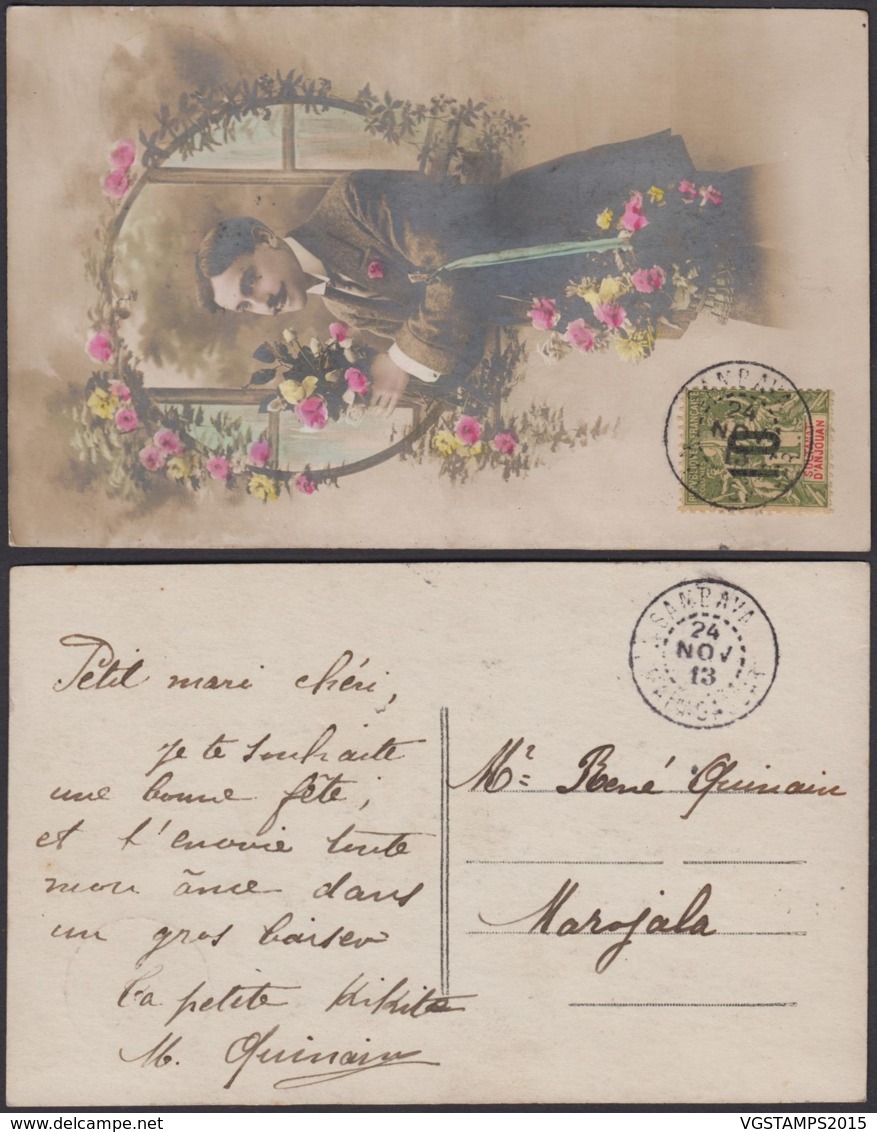 SAMBAVA
24
NOV
13
10
SULTANAT
D'ANJOUAN
SAMBAVA
24
NOV
13
MADAGASCAR
Petit mari chéri,
je te souhaite
une bonne fête,
et t'envoie toute
mon âme dans
un gros baiser
Ta petite Kikite
M. Quinain
Mr René Quinain
Marojala
VGSTAMPS2015